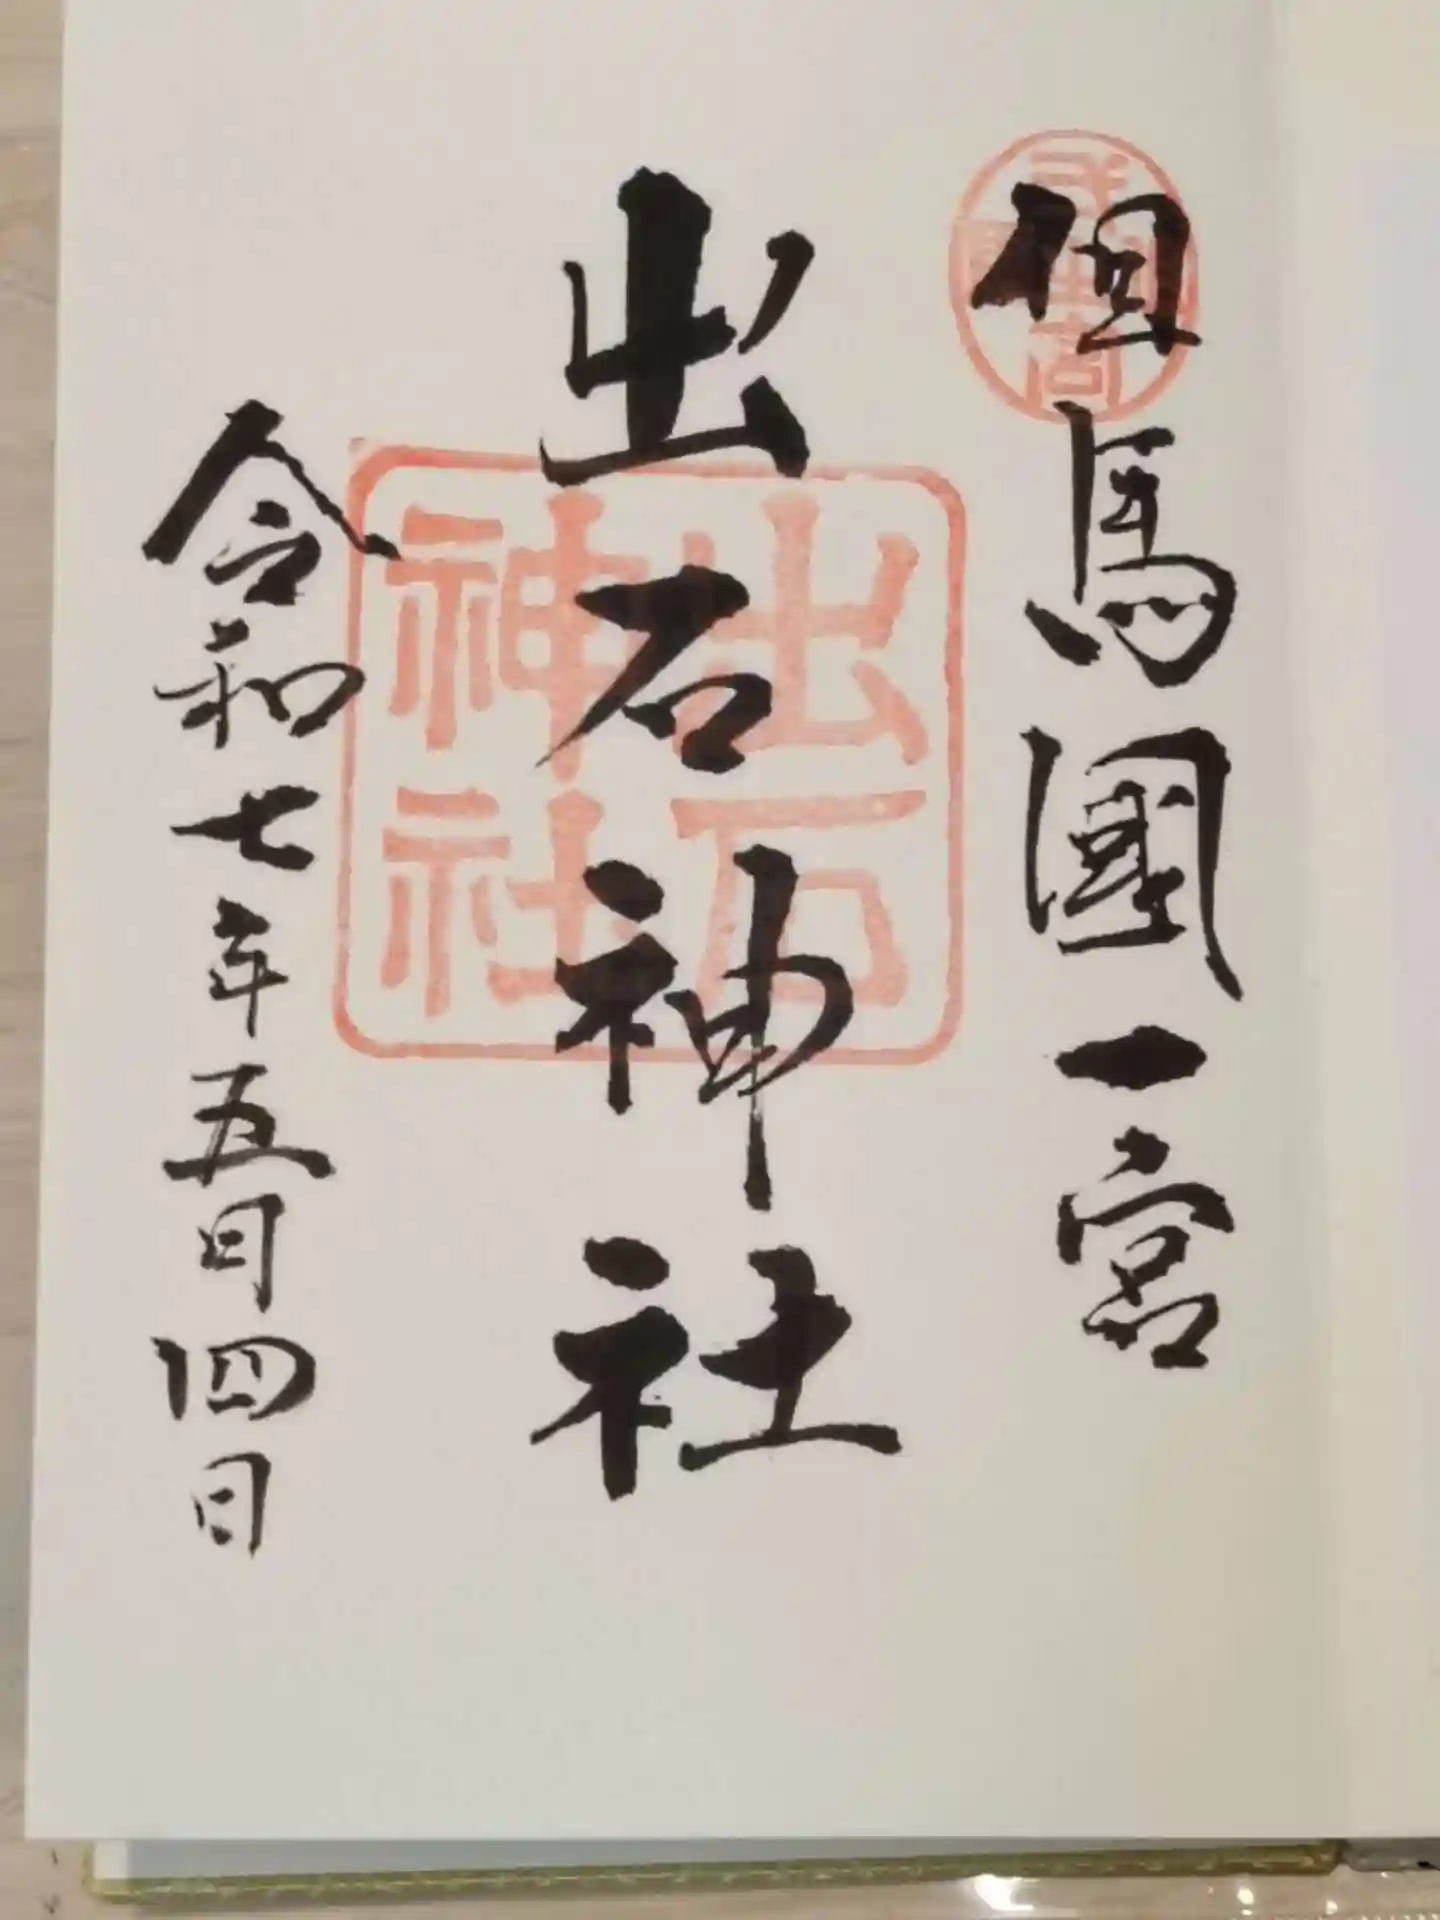 但馬國一宮
出石神社
出石
神社
令和七年五月四日